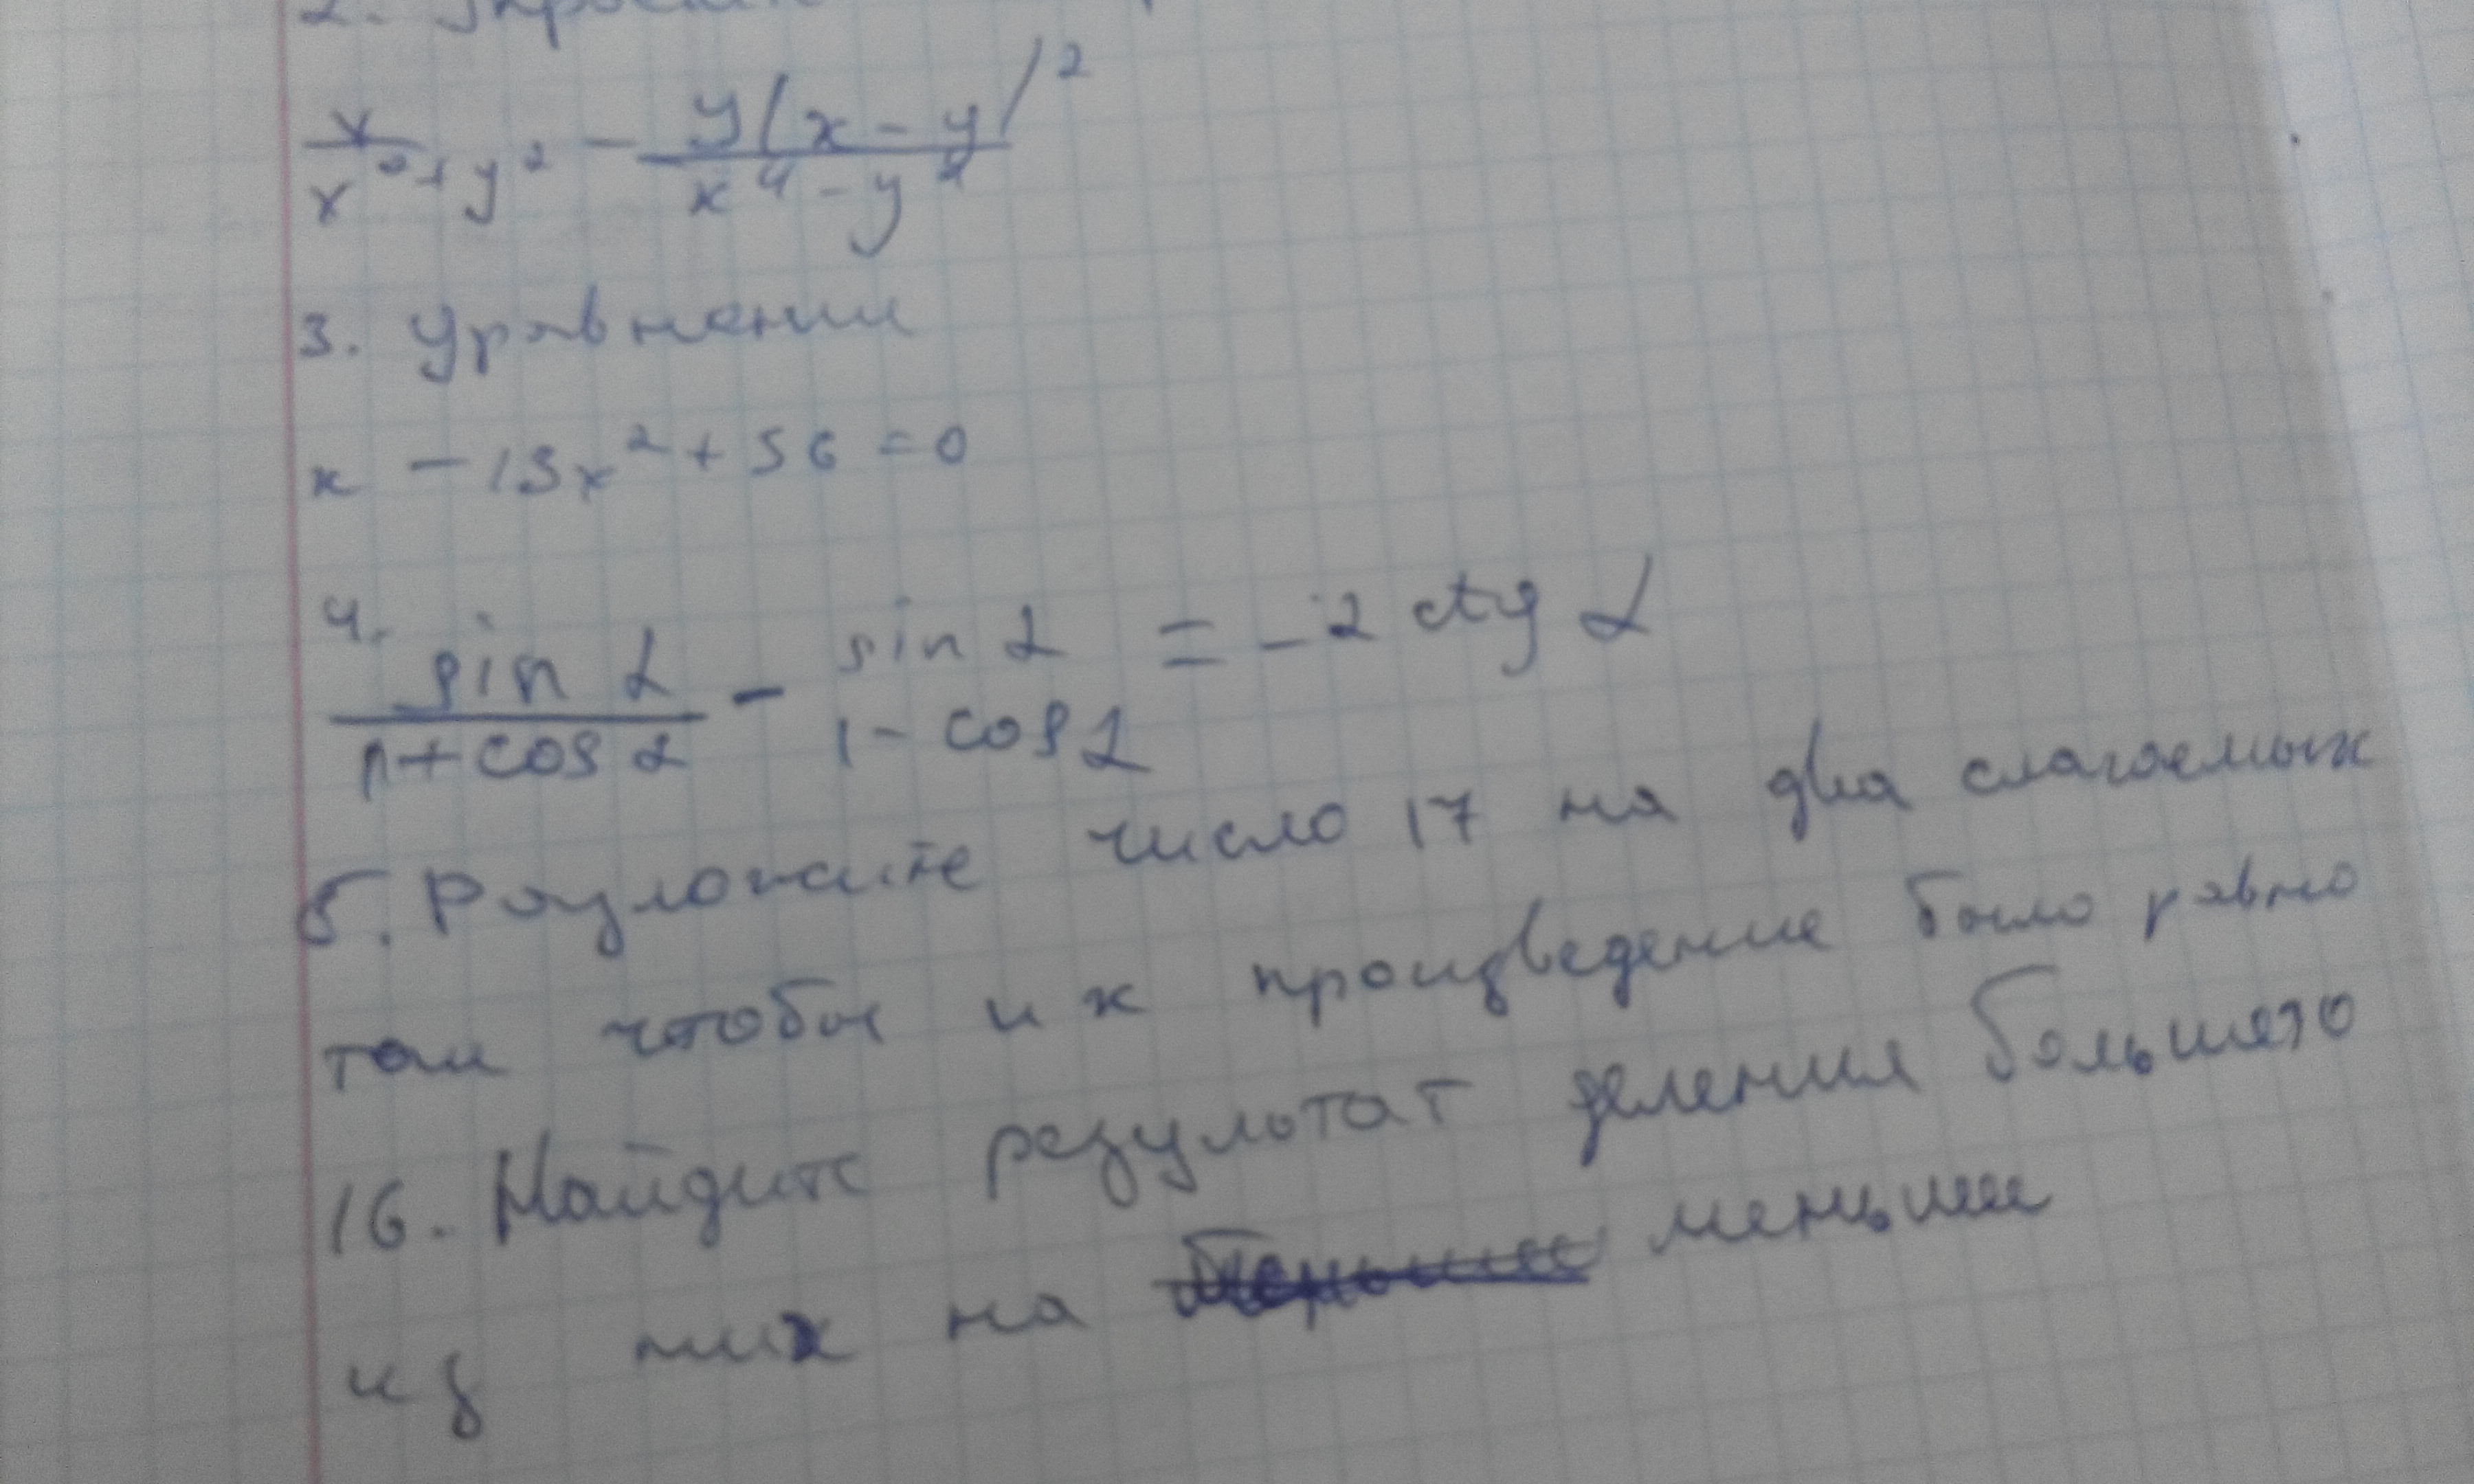 2.
x / x² + y² - y(x - y)² / x⁴ - y⁴
3. Уравнении
x - 13x² + 36 = 0
4.
sin α / 1 + cos α - sin α / 1 - cos α = -2 ctg α
5. Разложите число 17 на два слагаемых
так чтобы их произведение было равно
16. Найдите результат деления большего
из них на меньшее